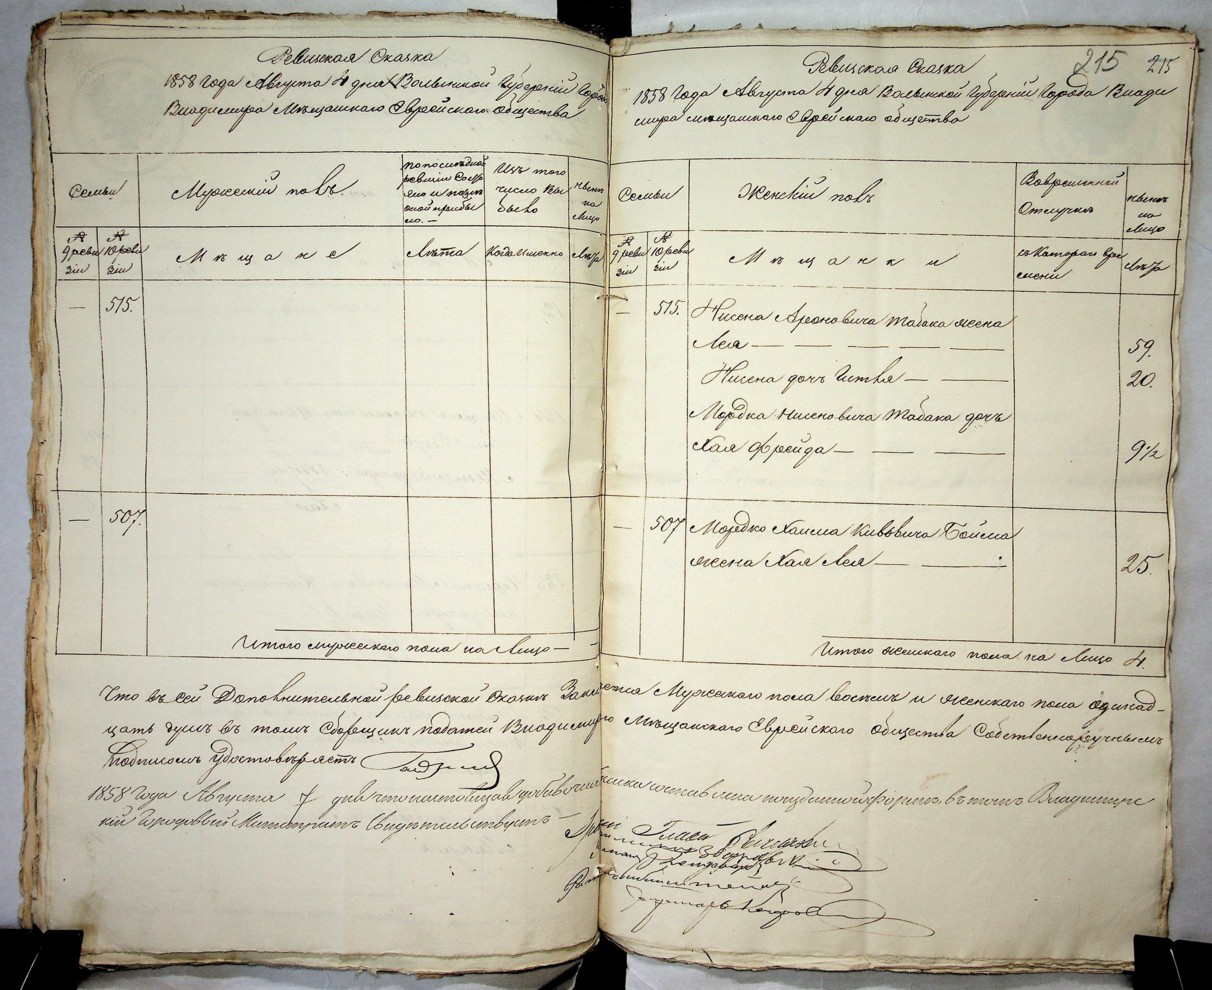 Ревизская Сказка
1858 года Августа 4 дня Волынской Губерніи Города
Владимира Мѣщанскаго Еврейскаго общества
Семьи
Мужескій полъ
По последней ревизіи Состояло и после оной прибыло. —
Изъ того число выбыло
нынѣ на лицо
№ 9 ревизіи
№ 10 ревизіи
Мѣщане
Лѣта
Когда именно
Лѣта
— 515.
— 507.
Итого мужескаго пола на Лицо — —
215 215
Ревизская Сказка
1858 года Августа 4 дня Волынской Губерніи Города Влади
мира мѣщанскаго Еврейскаго общества
Семьи
Женскій полъ
Во временной Отлучкѣ
нынѣ на Лицо
№ 9 ревизіи
№ 10 ревизіи
Мѣщанки
съ Котораго времени
Лѣта
— 515. Нисена Ароновича Табака жена
Лея — — — — — 59.
Нисена дочь Гитля — — 20.
Мордка Нисеновича Табака дочь
Хая Фрейда — — — — 9½
— 507 Мордко Хаима Кивовича Бойма
жена Хая Лея — — — 25.
Итого женскаго пола на Лицо 4.
Что въ сей Дополнительной ревизской Сказкѣ Мужескаго пола восемь и женскаго пола одинад-
цать душъ въ томъ Сборщикъ податей Владимирскаго Мѣщанскаго Еврейскаго общества Собственноручнымъ
Подписомъ Удостовѣряетъ
1858 года Августа 7 дня что настоящая составлена по изданной формѣ въ томъ Владимирс
кій Городовый Магистратъ Свидѣтельствуетъ —